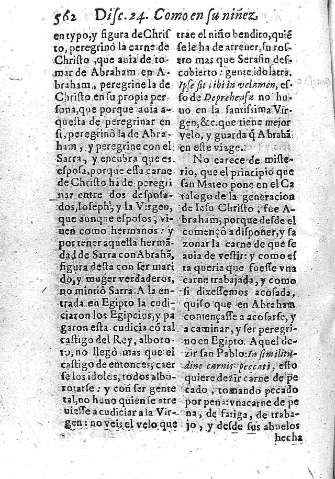 562 Disc. 24. Como en su niñez
en typo, y figura de Chris
to, peregrinò la carne de
Christo, que auia de to-
mar de Abraham en A-
braham, peregrine la de
Christo en su propia per
sona, porque auia a
questa de peregrinar en
si, peregrinò la de Abra-
ham, y peregrine con el
Sarra, y encubra que es
esposa, porque esta carne
de Christo ha de peregri
nar entre dos desposa-
dos, Ioseph, y la Virgen,
que aunque esposos, vi-
uen como hermanos: y
por tener aquella hermã-
dad de Sarra con Abrahã,
figura desta con ser mari
do, y muger verdaderos,
no mintiò Sarra. A la en-
trada en Egipto la cudi-
ciaron los Egipcios, y pa
garon esta cudicia cõ tal
castigo del Rey, alboro-
to, no llegò mas que el
castigo de entonces, caer
se los idolos, todos albo-
rotarse: y con ser gente
tal, no huuo quien se atre
uiesse a cudiciar a la Vir-
gen: no veis el velo que
trae el niño bendito, quiẽ
se le ha de atreuer, su ros-
tro mas que Serafin des-
cubierto: gente idolatra.
Ipse sit tibi in velamen, es-
so de Deprehensa no hu-
uo en la santissima Vir-
gen, &c. que tiene mejor
velo, y guarda q̃ Abrahã
en este viage.
No carece de miste-
rio, que el principio que
san Mateo pone en el Ca
talogo de la generacion
de Iesu Christo, fue A-
braham, porque desde el
començò a disponer, y sa
zonar la carne de que se
auia de vestir: y como es
ta queria que fuesse vna
carne trabajada, y como
si dixessemos acosada,
quiso que en Abraham
començasse a acosarse, y
a caminar, y ser peregri-
no en Egipto. Aquel de-
zir san Pablo: In similitu-
dine carnis peccati, esto
quiere dezir carne de pe
cado, tomando pecado
por pena: vna carne de pe
na, de fatiga, de traba-
jo, y desde sus abuelos
hecha